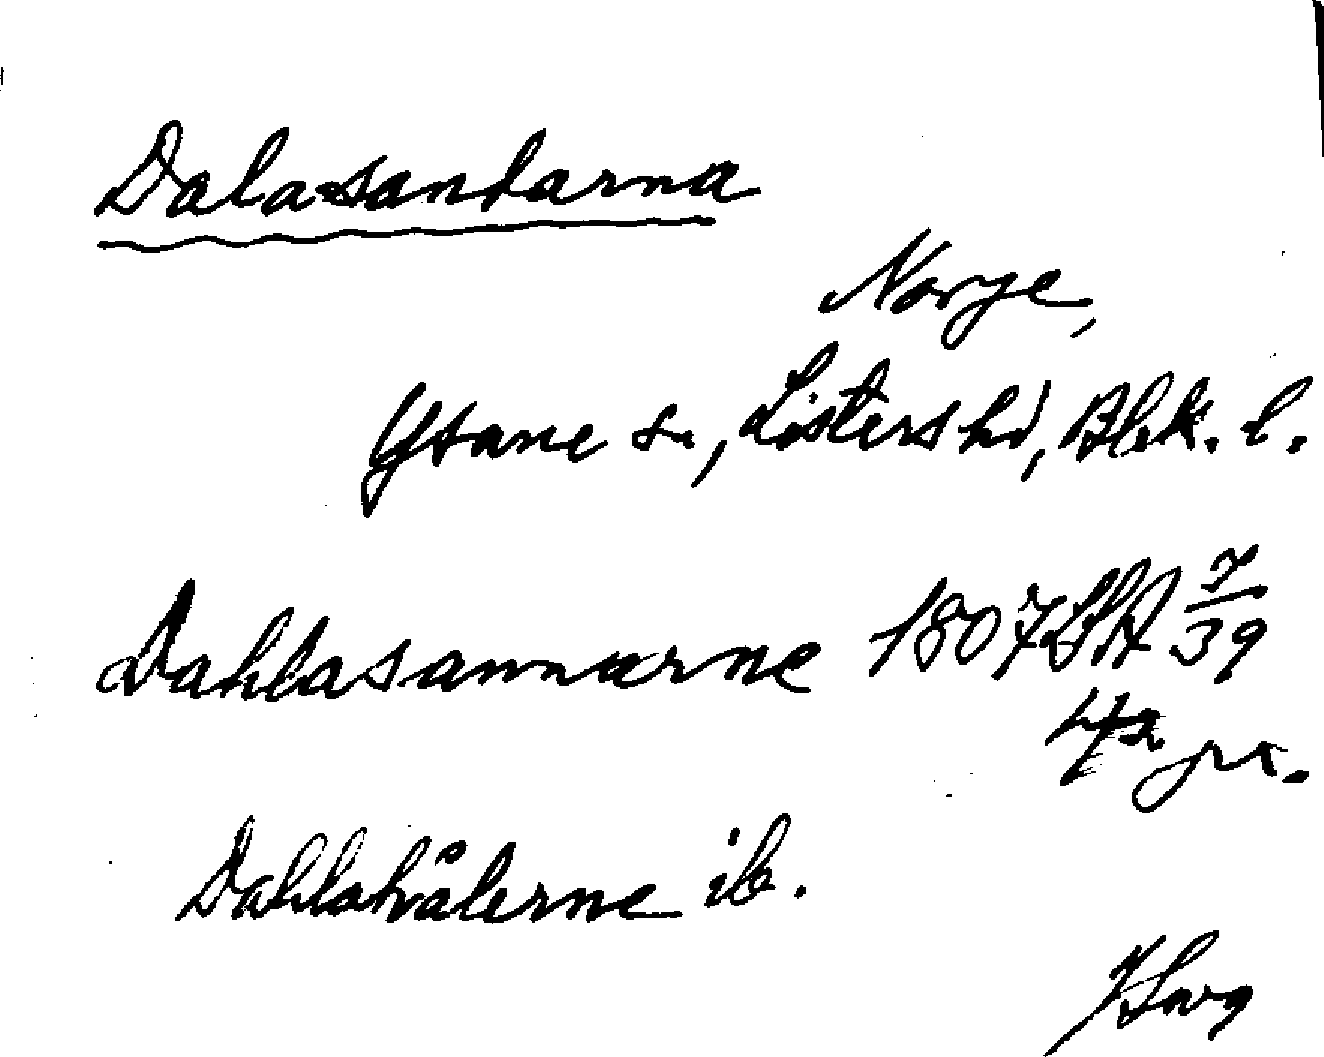 Dala-sandarna
Norje,
Ysane sn, Listers hd, Blek. l.
Dahlasannarne 1807 LSA 7/39
Dahlahålerne ib.